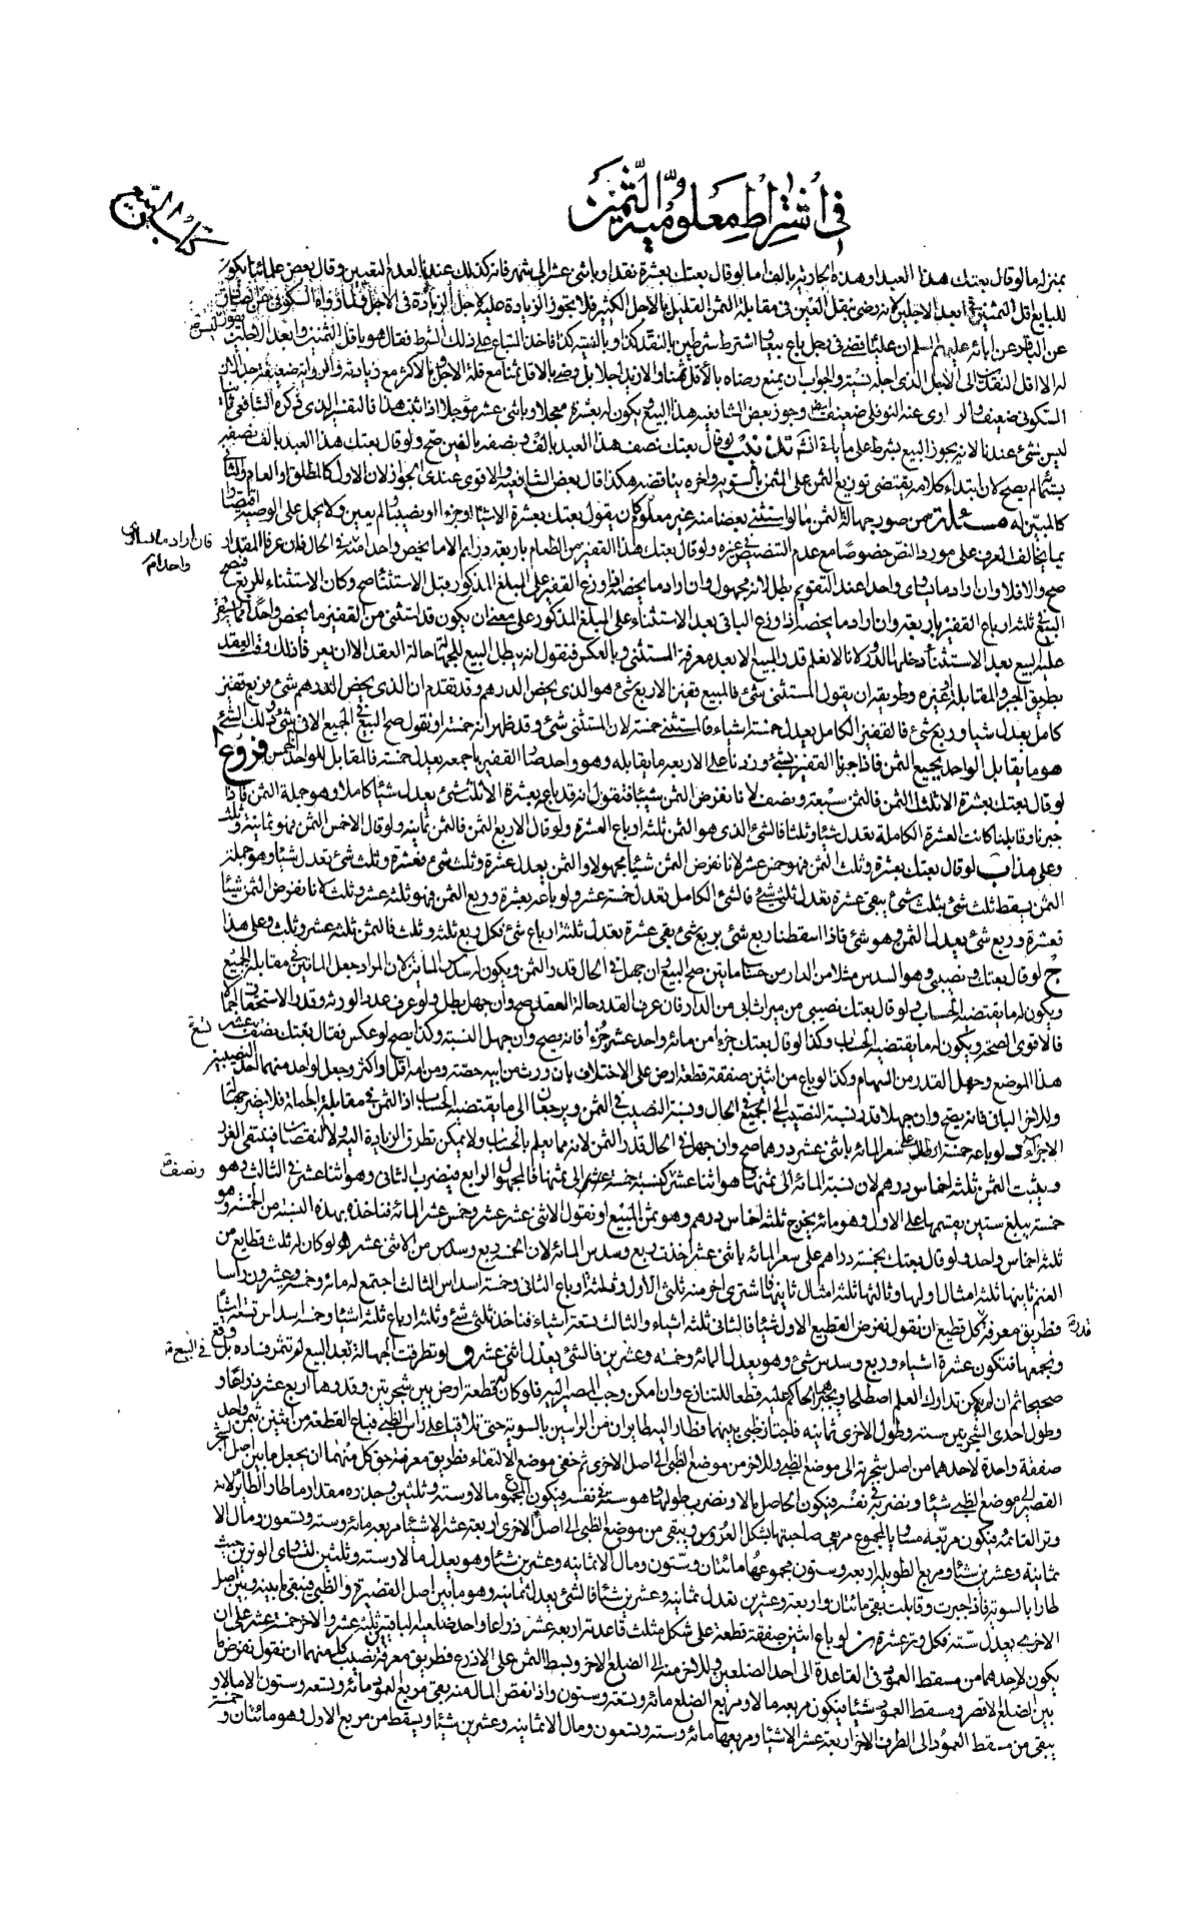 في اشتراط معلومية الثمن
كتاب البيع
بمنزلة ما لو قال بعتك هذا العبد او هذه الجارية بالف اما لو قال بعتك بعشرة نقدا وباثنى عشر الى شهر فانه كذلك عندنا لعدم التعيين وقال بعض علمائنا يكون
للبايع اقل الثمنين في ابعد الاجلين لانه رضي بنقل العين في مقابلة الثمن القليل بالاجل الكثير فلا يجوز الزيادة عليه لاجل الزيادة في الاجل ولما رواه السكوني عن الصادق
عن الباقر عن ابائه عليهم السلم ان عليا قضى في رجل باع بيعا واشترط شرطين بالنقد كذا وبالنسية كذا فاخذ المتاع على ذلك الشرط فقال هو باقل الثمنين وابعد الاجلين
له الا اقل النقدين الى الاجل الذي اجله نسية والجواب ان يمنع رضاه بالاقل ثمنا والازيد اجلا بل رضي بالاقل ثمنا مع قلة الاجل وبالاكثر مع زيادته والرواية ضعيفة
السكوني ضعيف والراوي عنه النوفلي ضعيف ايضا وجوز بعض الشافعية هذا البيع ويكون له بعشرة معجلا وباثنى عشر مؤجلا اذا ثبت هذا فالتفسير الذي ذكره الشافعي ثانيا
ليس بشئ عندنا لانه يجوز البيع بشرط على ما ياتي انشاء الله تذنيب لو قال بعتك نصف هذا العبد بالف ونصفه بالفين صح ولو قال بعتك هذا العبد بالف نصفه
بستمائة لم يصح لان ابتداء كلامه يقتضي توزيع الثمن على المثمن بالسوية واخره يناقضه هكذا قال بعض الشافعية والاقوى عندي الجواز لان الاول كالمطلق والعام والثاني
كالمبين له مسئلة من صور جهالة الثمن ما لو استثنى بعضا منه غير معلوم كان يقول بعتك بعشرة الا شيئا او جزءا او نصيبا ولم يعين ولا يحمل على الوصية اقتصارا
بما يخالف العرف على مورد النص خصوصا مع عدم التنصيص في غيره ولو قال بعتك هذا القفيز من الطعام باربعة دراهم الا ما يخص واحدا منه في الحال فان عرفا المقدار
فان اراد ما يساوي
واحدا
صح والا فلا وان اراد ما يساوي واحدا عند التقويم بطل لانه مجهول وان اراد ما يخصه اذا وزع القفيز على المبلغ المذكور قبل الاستثناء صح وكان الاستثناء للربع فيصح
البيع في ثلثة ارباع القفيز باربعة وان اراد ما يخصه اذا وزع الباقي بعد الاستثناء على المبلغ المذكور على معنى ان يكون قد استثنى من القفيز ما يخص واحدا مما يستقر
عليه البيع بعد الاستثناء دخلها الدور لانا لا نعلم قدر المبيع الا بعد معرفة المستثنى وبالعكس فيقول انه يبطل البيع للجهالة حالة العقد الا ان يعرفا ذلك وقت العقد
بطريق الجبر والمقابلة او غيره وطريقه ان يقول المستثنى شئ فالمبيع قفيز الا ربع شئ هو الذي يخص الدرهم وقد تقدم ان الذي يخص الدرهم شئ
كامل يعدل شيئا وربع شئ فالقفيز الكامل يعدل خمسة اشياء فالمستثنى خمسه لان المستثنى شئ وقد ظهر انه خمسه او نقول صح البيع في الجميع الا في شئ وذلك الشئ
هو ما يقابل الواحد بجميع الثمن فاذا جبرنا القفيز بشئ وزدنا على الاربعة ما يقابله وهو واحد صار القفيز باجمعه يعدل خمسة فالمقابل للواحد الخمس فروع ا
لو قال بعتك بعشرة الا ثلث الثمن فالثمن سبعة ونصف لانا نفرض الثمن شيئا فنقول انه قد باع بعشرة الا ثلث شئ يعدل شيئا كاملا وهو جملة الثمن فاذا
جبرنا وقابلنا كانت العشرة الكاملة تعدل شيئا وثلثا فالشئ الذي هو الثمن ثلثة ارباع العشرة ولو قال الا ربع الثمن فالثمن ثمانية ولو قال الا خمس الثمن فهو ثمانية وثلث
وعلى هذا ب لو قال بعتك بعشرة وثلث الثمن فهو خمسة عشر لانا نفرض الثمن شيئا مجهولا والثمن يعدل عشرة وثلث شئ فعشرة وثلث شئ تعدل شيئا وهو جملة
الثمن يسقط ثلث شئ بثلث شئ يبقى عشرة تعدل ثلثي شئ فالشئ الكامل يعدل خمسة عشر ولو باعه بعشرة وربع الثمن فهو ثلثة عشر وثلث لانا نفرض الثمن شيئا
فعشرة وربع شئ يعدل الثمن وهو شئ فاذا اسقطنا ربع شئ بربع شئ بقي عشرة تعدل ثلثة ارباع شئ فكل ربع ثلثة وثلث فالثمن ثلثة عشر وثلث وعلى هذا
ج لو قال بعتك نصيبي وهو السدس مثلا من الدار من حساب مائتين صح البيع وان جهل في الحال قدر الثمن ويكون له سدس المائتين لان المراد جعل المائتين في مقابلة الجميع
ويكون له ما يقتضيه الحساب ولو قال بعتك نصيبي من ميراث ابي من الدار فان عرف القدر حالة العقد صح وان جهل بطل ولو عرف عدد الورثة وقدر الاستحقاق اجمالا
فالاقوى الصحة ويكون له ما يقتضيه الحساب وكذا لو قال بعتك جزءا من مائة واحد عشر جزءا فانه يصح وان جهل النسبة وكذا يصح لو عكس فقال بعتك نصف تسع عشر
هذا الموضع وجهل القدر من السهام وكذا لو باع من اثنين صفقة قطعة ارض على الاختلاف بان ورث من ابيه حصته ومن امه اقل او اكثر وجعل لواحد منهما احد النصيبين
وللاخر الباقي فانه يصح وان جهلا قدر نسبة النصيب الى الجميع في الحال ونسبة النصيب في الثمن ويرجعان الى ما يقتضيه الحساب اذ الثمن في مقابلة الجملة فلا يضر جهالة
الاجزاء د لو باعه خمسة ارطال على سعر المائة باثنى عشر درهما صح وان جهل في الحال قدر الثمن لانه مما يعلم بالحساب ولا يمكن تطرق الزيادة اليه ولا النقصان فينتفي الغرر
ويثبت الثمن ثلثة اخماس درهم لان نسبة المائة الى ثمنها وهو اثنا عشر كنسبة خمسة الى ثمنها فالمجهول الرابع فيضرب الثاني وهو اثنا عشر في الثالث وهو
ونصف
خمسة يبلغ ستين يقسمها على الاول وهو مائة يخرج ثلثة اخماس درهم وهو ثمن المبيع او نقول الاثني عشر عشر وخمس عشر المائة فناخذ بهذه النسبة من الخمسة وهو
ثلثة اخماس واحد ولو قال بعتك بخمسة دراهم على سعر المائة باثنى عشر اخذت ربع وسدس المائة لان الخمسة ربع وسدس من الاثنى عشر ه ولو كان له ثلث قطايع من
الغنم ثانيها ثلثة امثال اولها وثالثها ثلثة امثال ثانيها فاشترى اخر منه ثلثي الاول وثلثة ارباع الثاني وخمسة اسداس الثالث اجتمع له مائة وخمسة وعشرون راسا
فطريق معرفة قدر كل قطيع ان نقول نفرض القطيع الاول شيئا فالثاني ثلثة اشياء والثالث تسعة اشياء فناخذ ثلثي شئ وثلثة ارباع ثلثة اشياء وخمسة اسداس تسعة اشياء
ونجمعها فتكون عشرة اشياء وربع وسدس شئ وهو يعدل المائة وخمسة وعشرين فالشئ يعدل اثنى عشر و لو تطرقت الجهالة بعد البيع لم تثمر فساده بل وقع
صحيحا ثم ان لم يمكن تدارك العلم اصطلحا ويجبرهما الحاكم عليه قطعا للتنازع وان امكن وجب المصير اليه فلو كان له قطعة ارض بين شجرتين وقدرها اربع عشر ذراعا و
وطول احدى الشجرتين ستة وطول الاخرى ثمانية فاجتاز ظبي بينهما فطار اليه طايران من الراسين بالسوية حتى تلاقيا على راس الظبي فباع القطعة من اثنين بثمن واحد
صفقة واحدة لاحدهما من اصل شجرة الى موضع الظبي وللاخر من موضع الظبي الى اصل الاخرى ثم خفي موضع الالتقاء فطريق معرفة حق كل منهما ان يجعل ما بين اصل الشجرة
القصيرة الى موضع الظبي شيئا ونضربه في نفسه فيكون الحاصل مالا ونضرب طولها وهو ستة في نفسه فيكون المجموع مالا وستة وثلثين وجذره مقدار ما طار الطاير لانه
وتر القائمة فيكون مربعه مساويا لمجموع مربعي صاحبتها بشكل العروس ويبقى من موضع الظبي الى اصل الاخرى اربعة عشر الا شيئا مربعه مائة وستة وتسعون ومال الا
ثمانية وعشرين شيئا ومربع الطويلة اربعة وستون ومجموعهما مائتان وستون ومال الا ثمانية وعشرين شيئا وهو يعدل مالا وستة وثلثين لتساوي الوترين حيث
طارا بالسوية فاذا جبرت وقابلت بقي مائتان واربعة وعشرين تعدل ثمانية وعشرين شيئا فالشئ يعدل ثمانية وهو ما بين اصل القصيرة والظبي فيبقى ما بينه وبين اصل
الاخرى يعدل ستة فكل وتر عشرة ز لو باع اثنين صفقة قطعة على شكل مثلث قاعدته اربعة عشر ذراعا واحد ضلعيه الباقيين ثلثة عشر والاخر خمسة عشر على ان
يكون لاحدهما من مسقط العمود في القاعدة الى احد الضلعين وللاخر منه الى الضلع الاخر وبسط الثمن على الاذرع فطريق معرفة نصيب كل منهما ان نقول نفرض ما
بين الضلع الاقصر ومسقط العمود شيئا فيكون مربعه مالا ومربع الضلع مائة وتسعة وستون واذا نقص المال منه بقي مربع العمود مائة وتسعة وستون الا مالا و
يبقى من مسقط العمود الى الطرف الاخر اربعة عشر الا شيئا ومربعها مائة وستة وتسعون ومال الا ثمانية وعشرين شيئا ويسقط من مربع الاول وهو مائتان و